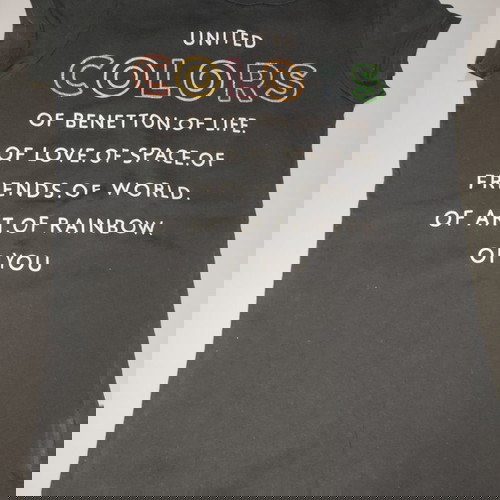 UNITED
COLORS
OF BENETTON.OF LIFE.
OF LOVE.OF SPACE.OF
FRIENDS.OF WORLD.
OF ART.OF RAINBOW
OF YOU